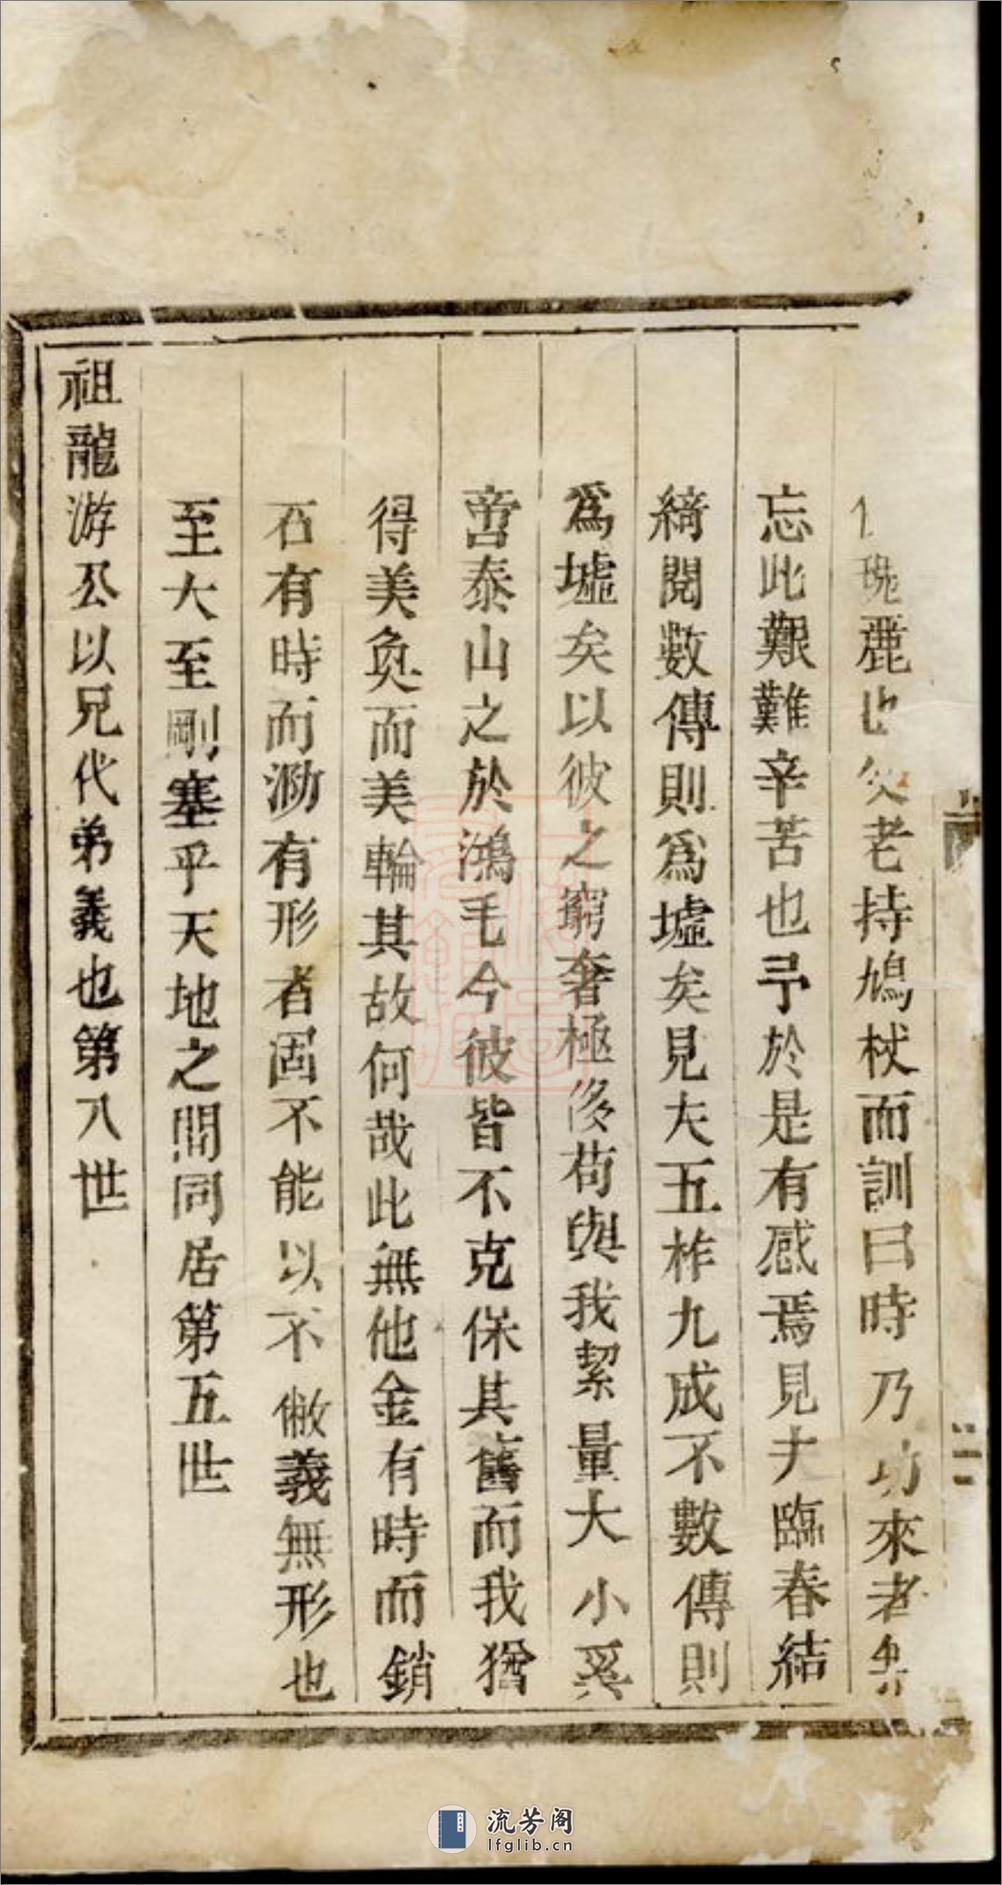 瑰麗也父老持鳩杖而訓曰時乃功來者無
忘此艱難辛苦也予於是有感焉見夫臨春結
綺閱數傳則爲墟矣見夫五柞九成不數傳則
爲墟矣以彼之窮奢極侈苟與我絜量大小奚
啻泰山之於鴻毛今彼皆不克保其舊而我猶
得美奐而美輪其故何哉此無他金有時而銷
石有時而泐有形者固不能以不敝義無形也
至大至剛塞乎天地之間同居第五世
祖龍游公以兄代弟義也第八世
流芳阁
lfglib.cn